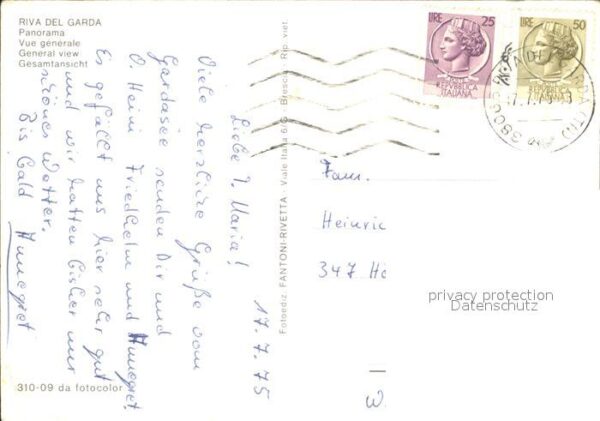 RIVA DEL GARDA
Panorama
Vue generale
General view
Gesamtansicht
17.7.75
Liebe T. Maria!
Viele herzliche Grüße vom
Gardasee senden Dir und
O. Heini Friedhelm und Annegret.
Es gefällt uns hier sehr gut
und wir hatten bisher nur
schönes Wetter.
Bis bald Annegret
310-09 da fotocolor
Fotoediz. FANTONI-RIVETTA - Viale Italia - Brescia - Rip. viet.
LIRE 25
REPUBBLICA
ITALIANA
LIRE 50
REPUBBLICA
ITALIANA
Fam.
Heinric
347 Hö
W.
privacy protection
Datenschutz